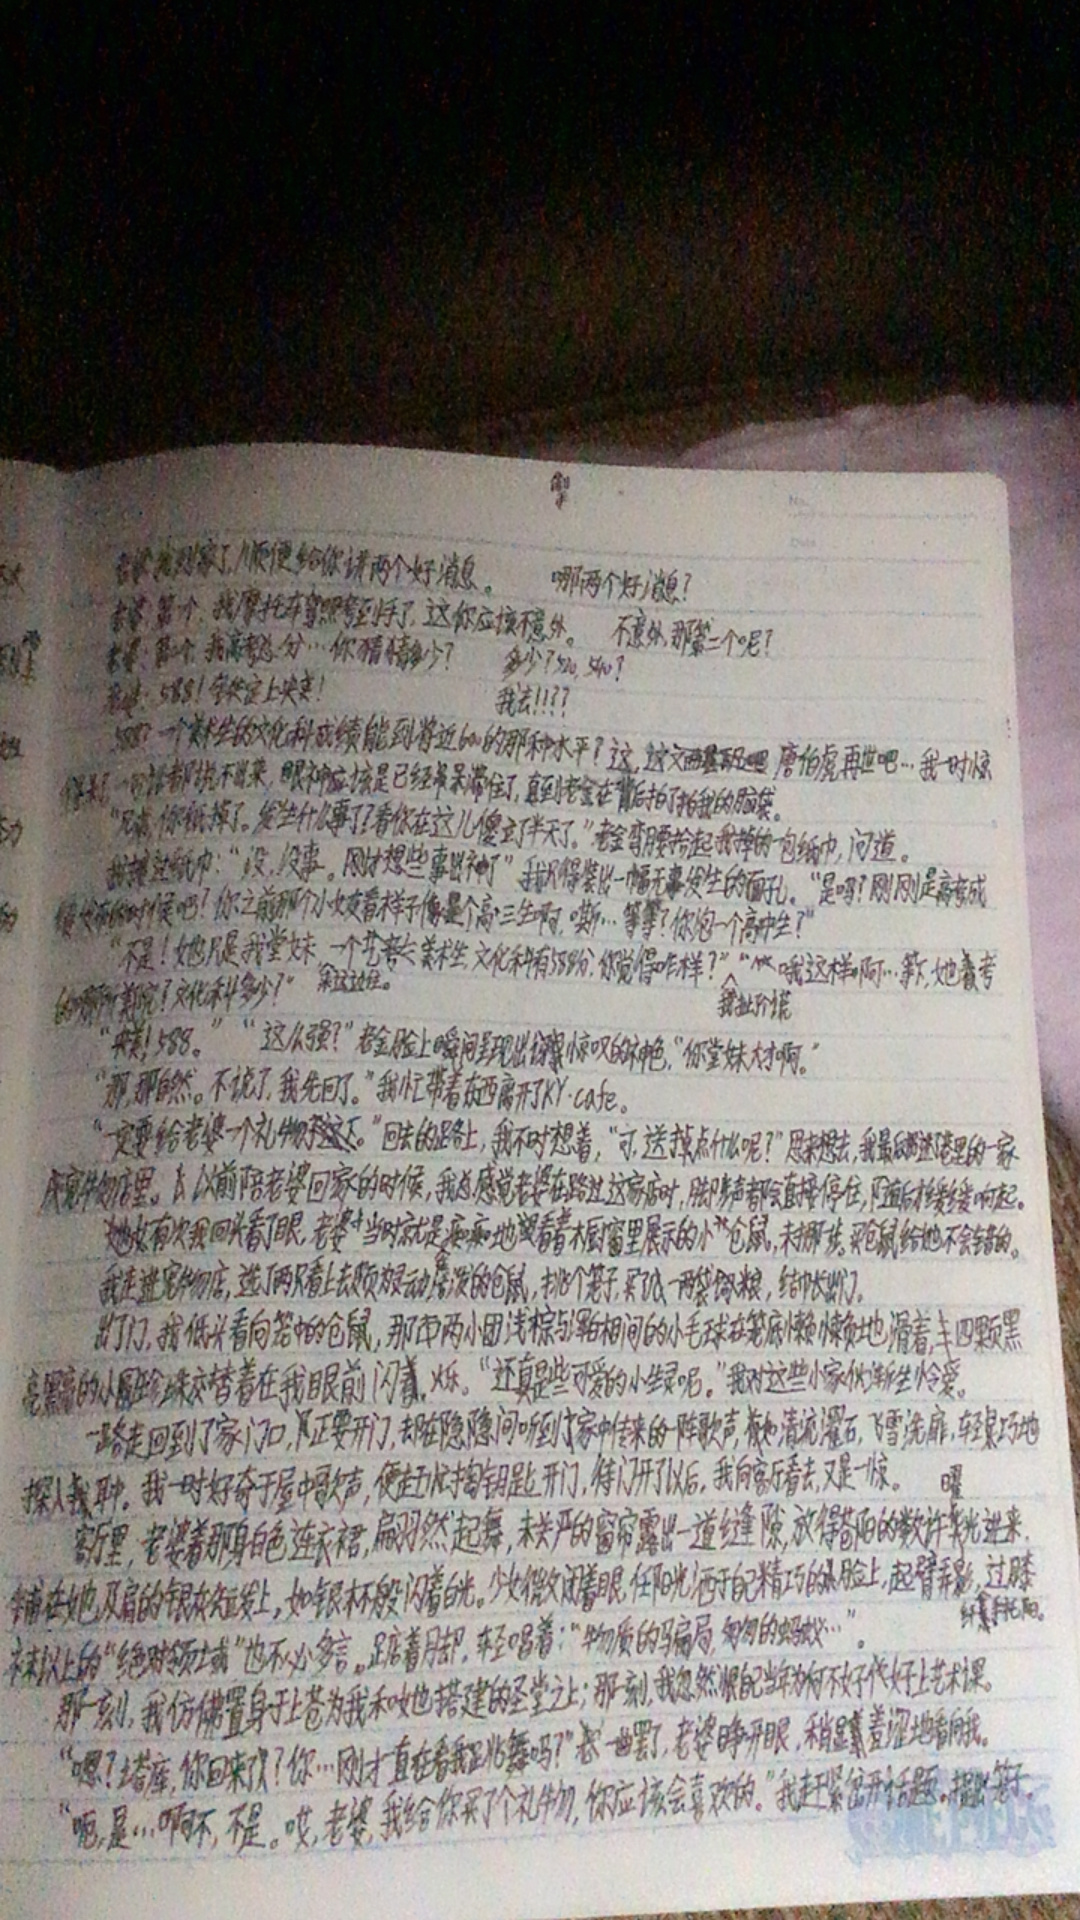 老婆:我到家了,顺便给你讲两个好消息。 哪两个好消息?
老婆:第一个,我摩托车驾照考到手了,这你应该不意外。 不意外,那第二个呢?
老婆:第二个,我高考总分…你猜猜多少? 多少?520,540?
老婆:588!学校定上央美! 我去!!??
588?一个美术生的文化科成绩能到将近600的那种水平?这,这 唐伯虎再世吧…我一时惊
一句话都说不出来,眼神应该是已经呆滞住了,直到老金在背后拍了拍我的脑袋。
你纸掉了。发生什么事了?看你在这儿傻立了半天了。”老金弯腰拾起我掉的一包纸巾,问道。
我接过纸巾:“没,没事。刚才想些事出神了”我只得装出一幅无事发生的面孔。“是吗?刚刚是高考成
时候吧!你之前那个小女友看样子像是个高三生啊,嘶…等等?你泡一个高中生?”
“不是!她只是我堂妹,一个艺考美术生,文化科有588分,你觉得咋样?”“哦这样啊…等下,她最考
我扯个谎
的哪所美院?文化科多少?”
“央美!588。”“这么强?”老金脸上瞬间呈现出惊叹的神色,“你堂妹大才啊。”
“那,那自然。不说了,我先回了。”我忙带着东西离开了KY·cafe。
“一定要给老婆一个礼物。”回去的路上,我不时想着,“可,送点什么呢?”思来想去,我最后 巷里的一家
宠物店里。以前陪老婆回家的时候,我总感觉老婆在路过这家店时,脚步声都会直接停住,随后才缓缓响起。
有次我回头看了眼,老婆当时就是痴痴地望着木橱窗里展示的小仓鼠,未挪那步。买仓鼠给她不会错的。
我走进宠物店,选了两只看上去颇为灵动活泼的仓鼠,挑个笼子,买了一两袋饲粮,结帐出门。
出了门,我低头看向笼中的仓鼠,那两小团浅棕与黑白相间的小毛球在笼底懒懒地滑着,四颗黑
亮黑亮的小圆珍珠交替着在我眼前闪烁。“还真是些可爱的小生灵呢。”我对这些小家伙渐生怜爱。
一路走回到了家门口,正要开门,却在隐隐间听到了家中传来的一阵歌声,有如清流濯石,飞雪洗扉,轻柔巧地
探入我耳中。我一时好奇于屋中歌声,便赶忙掏钥匙开门,待门开了以后,我向客厅看去,又是一惊。
曜
客厅里,老婆着那身白色连衣裙,扁羽然起舞,未关严的窗帘露出一道缝隙,放得苍阳的数许光进来,
铺在她及肩的银灰短发上,如银杯般闪着白光。少女微闭着眼,任阳光洒于自己精巧的脸上,起臂弄影,过膝
袜以上的“绝对领域”也不必多言。踮着月却,轻唱着:“物质的骗局,匆匆的蚂蚁…”。
那一刻,我仿佛置身于上苍为我和她搭建的圣堂之上;那一刻,我忽然恨自己当年为何不好好上艺术课。
“嗯?塔库,你回来了?你…刚才一直在看我跳舞吗?”一曲罢了,老婆睁开眼,稍显羞涩地看向我。
“呃,是…啊不,不是。哎,老婆,我给你买了个礼物,你应该会喜欢的。”我赶紧岔开话题。提出笼子。